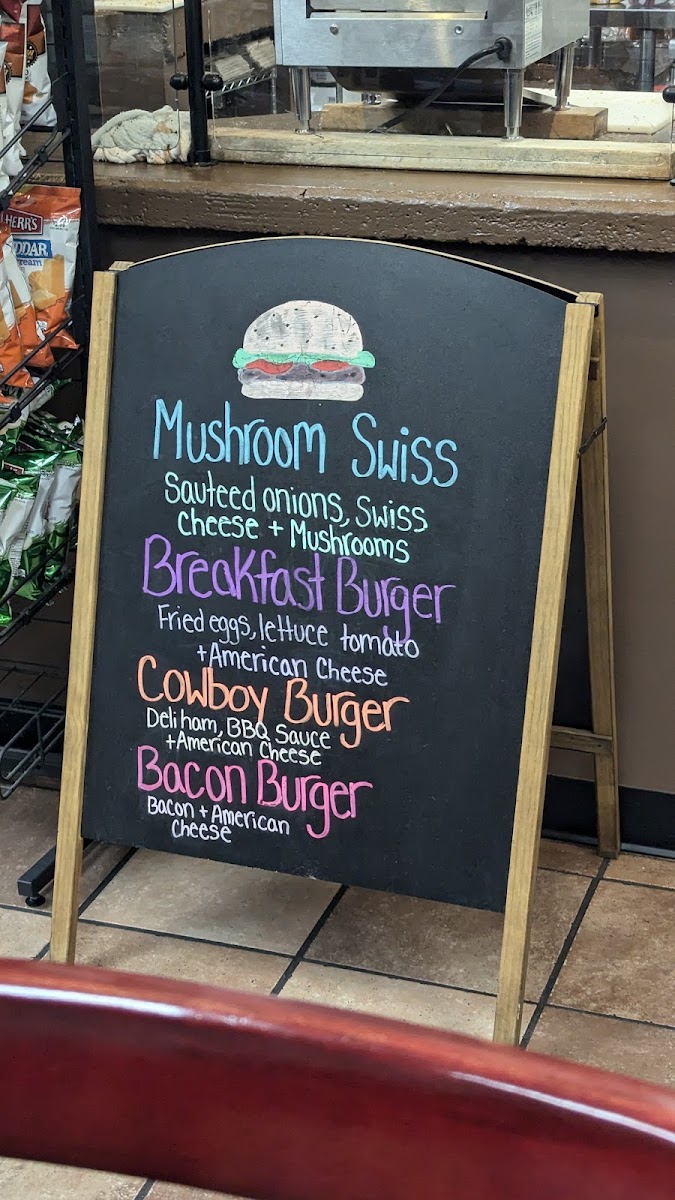 HERR'S
Mushroom Swiss
Sauteed onions, Swiss
Cheese + Mushrooms
Breakfast Burger
Fried eggs, lettuce tomato
+American Cheese
Cowboy Burger
Deli ham, BBQ Sauce
+American Cheese
Bacon Burger
Bacon + American
Cheese